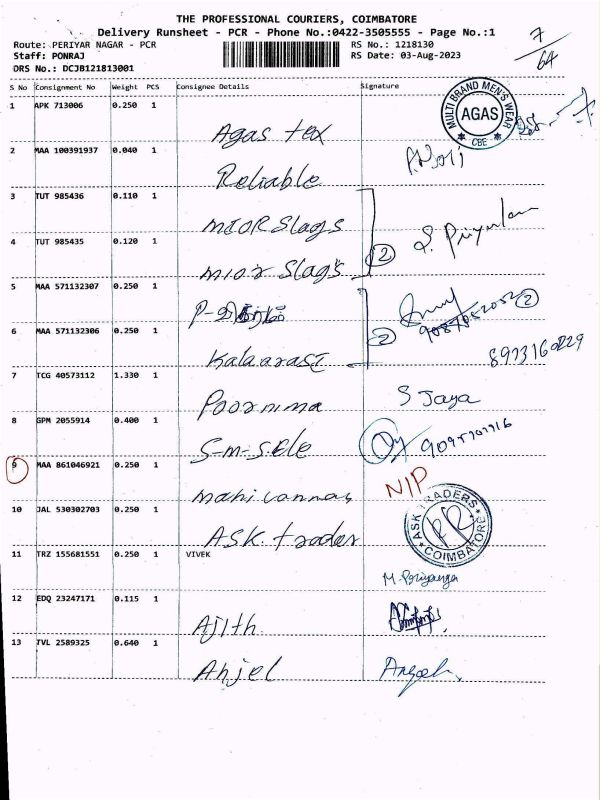 THE PROFESSIONAL COURIERS, COIMBATORE
Delivery Runsheet - PCR - Phone No.:0422-3505555 - Page No.:1
7/64
Route: PERIYAR NAGAR - PCR RS No.: 1218130
Staff: PONRAJ RS Date: 03-Aug-2023
DRS No.: DCJB121813001
S No Consignment No Weight PCS Consignee Details Signature
1 APK 713006 0.250 1
Agas tex
MULTI BRAND MEN'S WEAR AGAS CBE
2 MAA 100391937 0.040 1
Reliable
3 TUT 985436 0.110 1
MIOR Slags
4 TUT 985435 0.120 1
mior Slags 2
5 MAA 571132307 0.250 1
P-
2
6 MAA 571132306 0.250 1
Kalaarasi 2
8973160229
7 TCG 40573112 1.330 1
Poornima S Jaya
8 GPM 2055914 0.400 1
S-m-s.Ele
9 MAA 861046921 0.250 1
manivannan NIP
10 JAL 530302703 0.250 1
ASK. trader
ASK TRADERS COIMBATORE
11 TRZ 155681551 0.250 1 VIVEK
M. Priyanga
12 EDQ 23247171 0.115 1
Ajith
13 TVL 2589325 0.640 1
Anjel